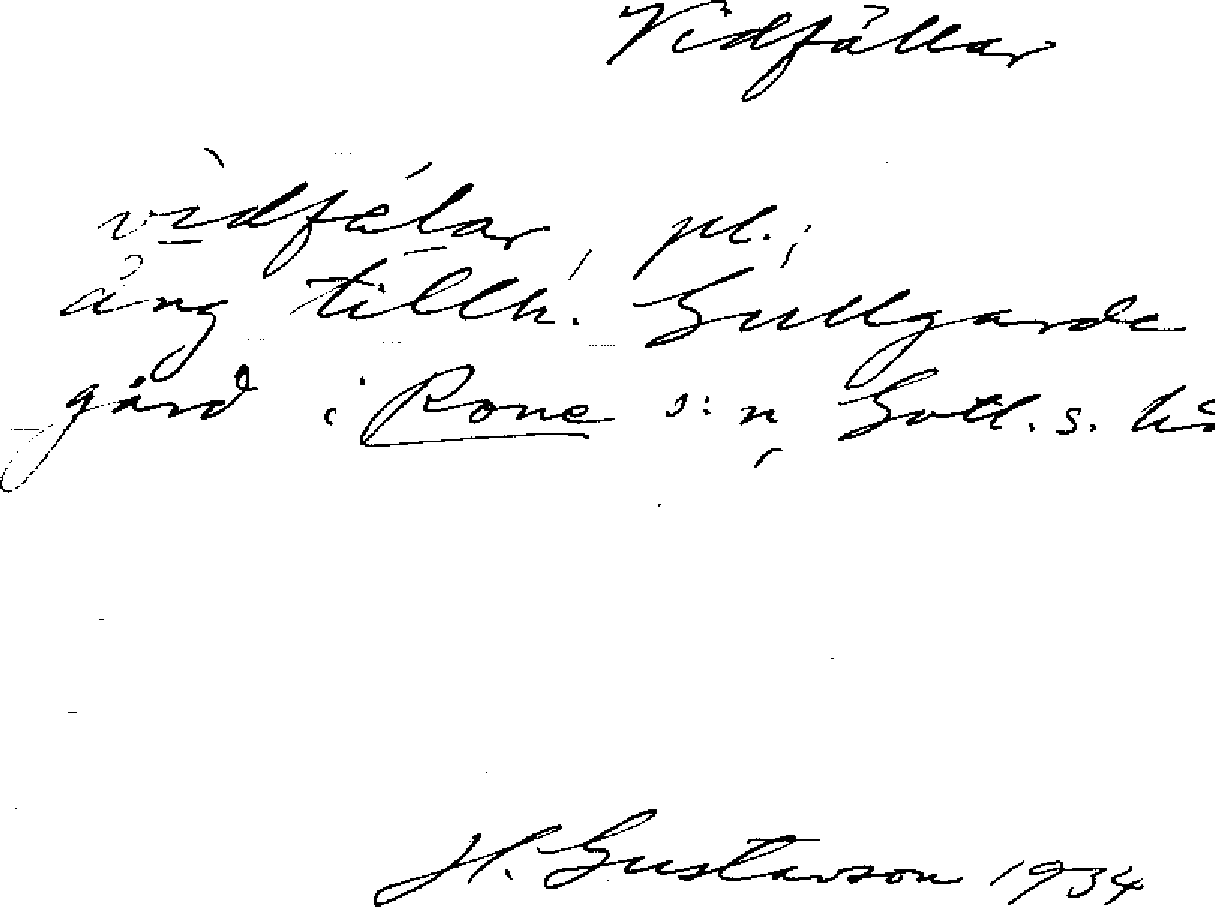 Vidfällar
vìdfálar, pl.;
äng tillh. Gullgarde
gård i Rone s:n, Gotl. s. hä
H. Gustavson 1934